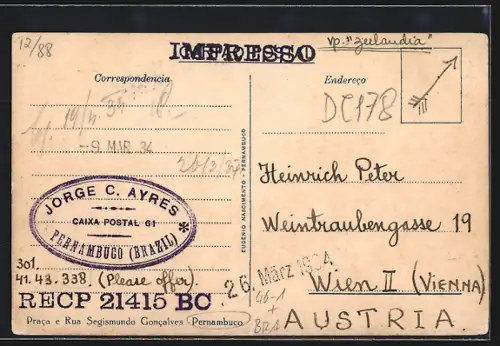 12/88
IMPRESSO
vp. "Zeelandia"
Correspondencia
Endereço
DC178
-9 MAR 34
JORGE C. AYRES
CAIXA POSTAL 61
PERNAMBUCO (BRAZIL)
EUGENIO NASCIMENTO - PERNAMBUCO
Heinrich Peter
Weintraubengasse 19
26. März 1934
Wien II (VIENNA)
AUSTRIA.
301.
41.43.338. (Please offer)
RECP 21415 BC
46-1
+ BRA
Praça e Rua Segismundo Gonçalves Pernambuco